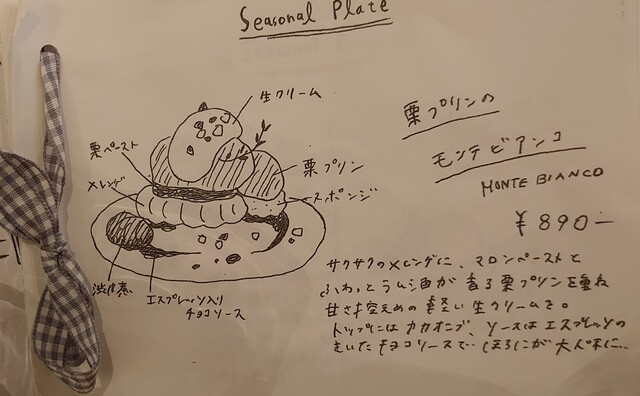 Seasonal Plate
生クリーム
栗プリンの
モンテビアンコ
MONTE BIANCO
¥890−
栗ペースト
メレンゲ
栗プリン
スポンジ
渋皮煮
エスプレッソ入り
チョコソース
サクサクのメレンゲに、マロンペーストと
ふわっとラム酒が香る栗プリンを重ね
甘さ控えめの軽い生クリームを。
トップにはカカオニブ、ソースはエスプレッソの
きいたチョコソースで…ほろにが大人味に…